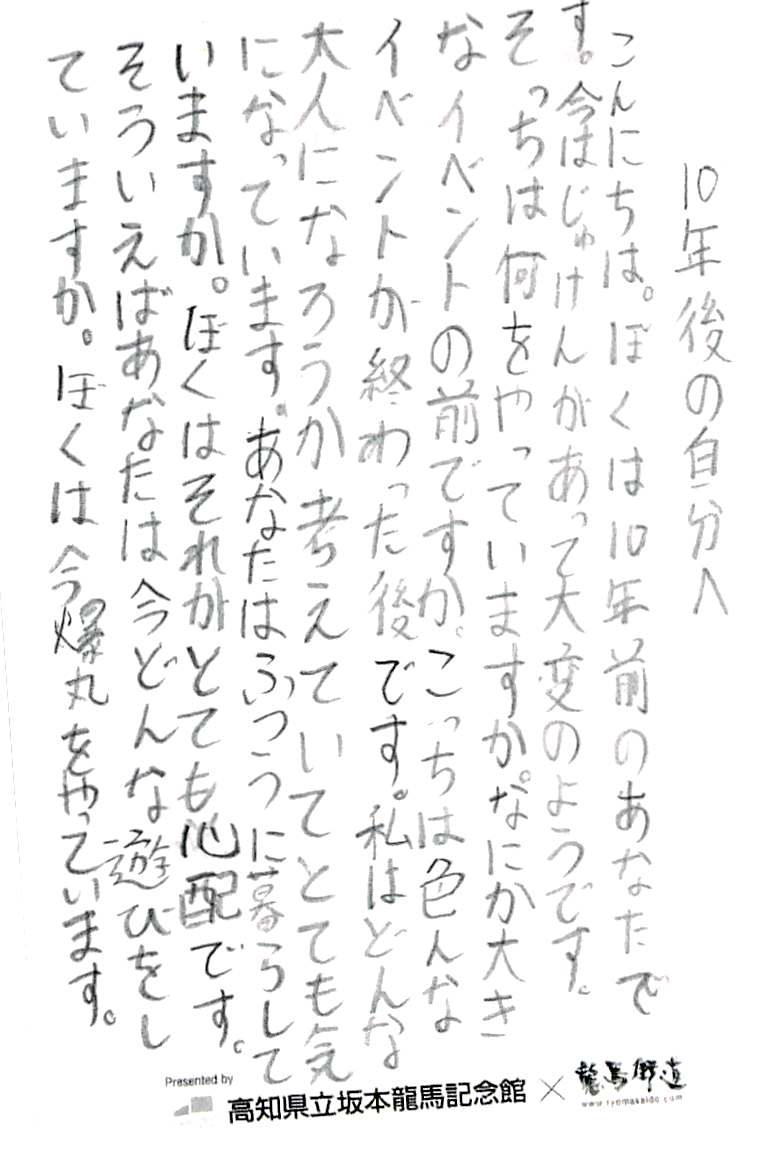 10年後の自分へ
こんにちは。ぼくは10年前のあなたで
す。今はじゅけんがあって大変のようです。
そっちは何をやっていますか。なにか大き
なイベントの前ですか。こっちは色んな
イベントが終わった後です。私はどんな
大人になろうか考えていてとても気
になっています。あなたはふつうに暮らして
いますか。ぼくはそれがとても心配です。
そういえばあなたは今どんな遊びをし
ていますか。ぼくは今爆丸をやっています。
Presented by
高知県立坂本龍馬記念館×龍馬街道
www.ryomakaido.com